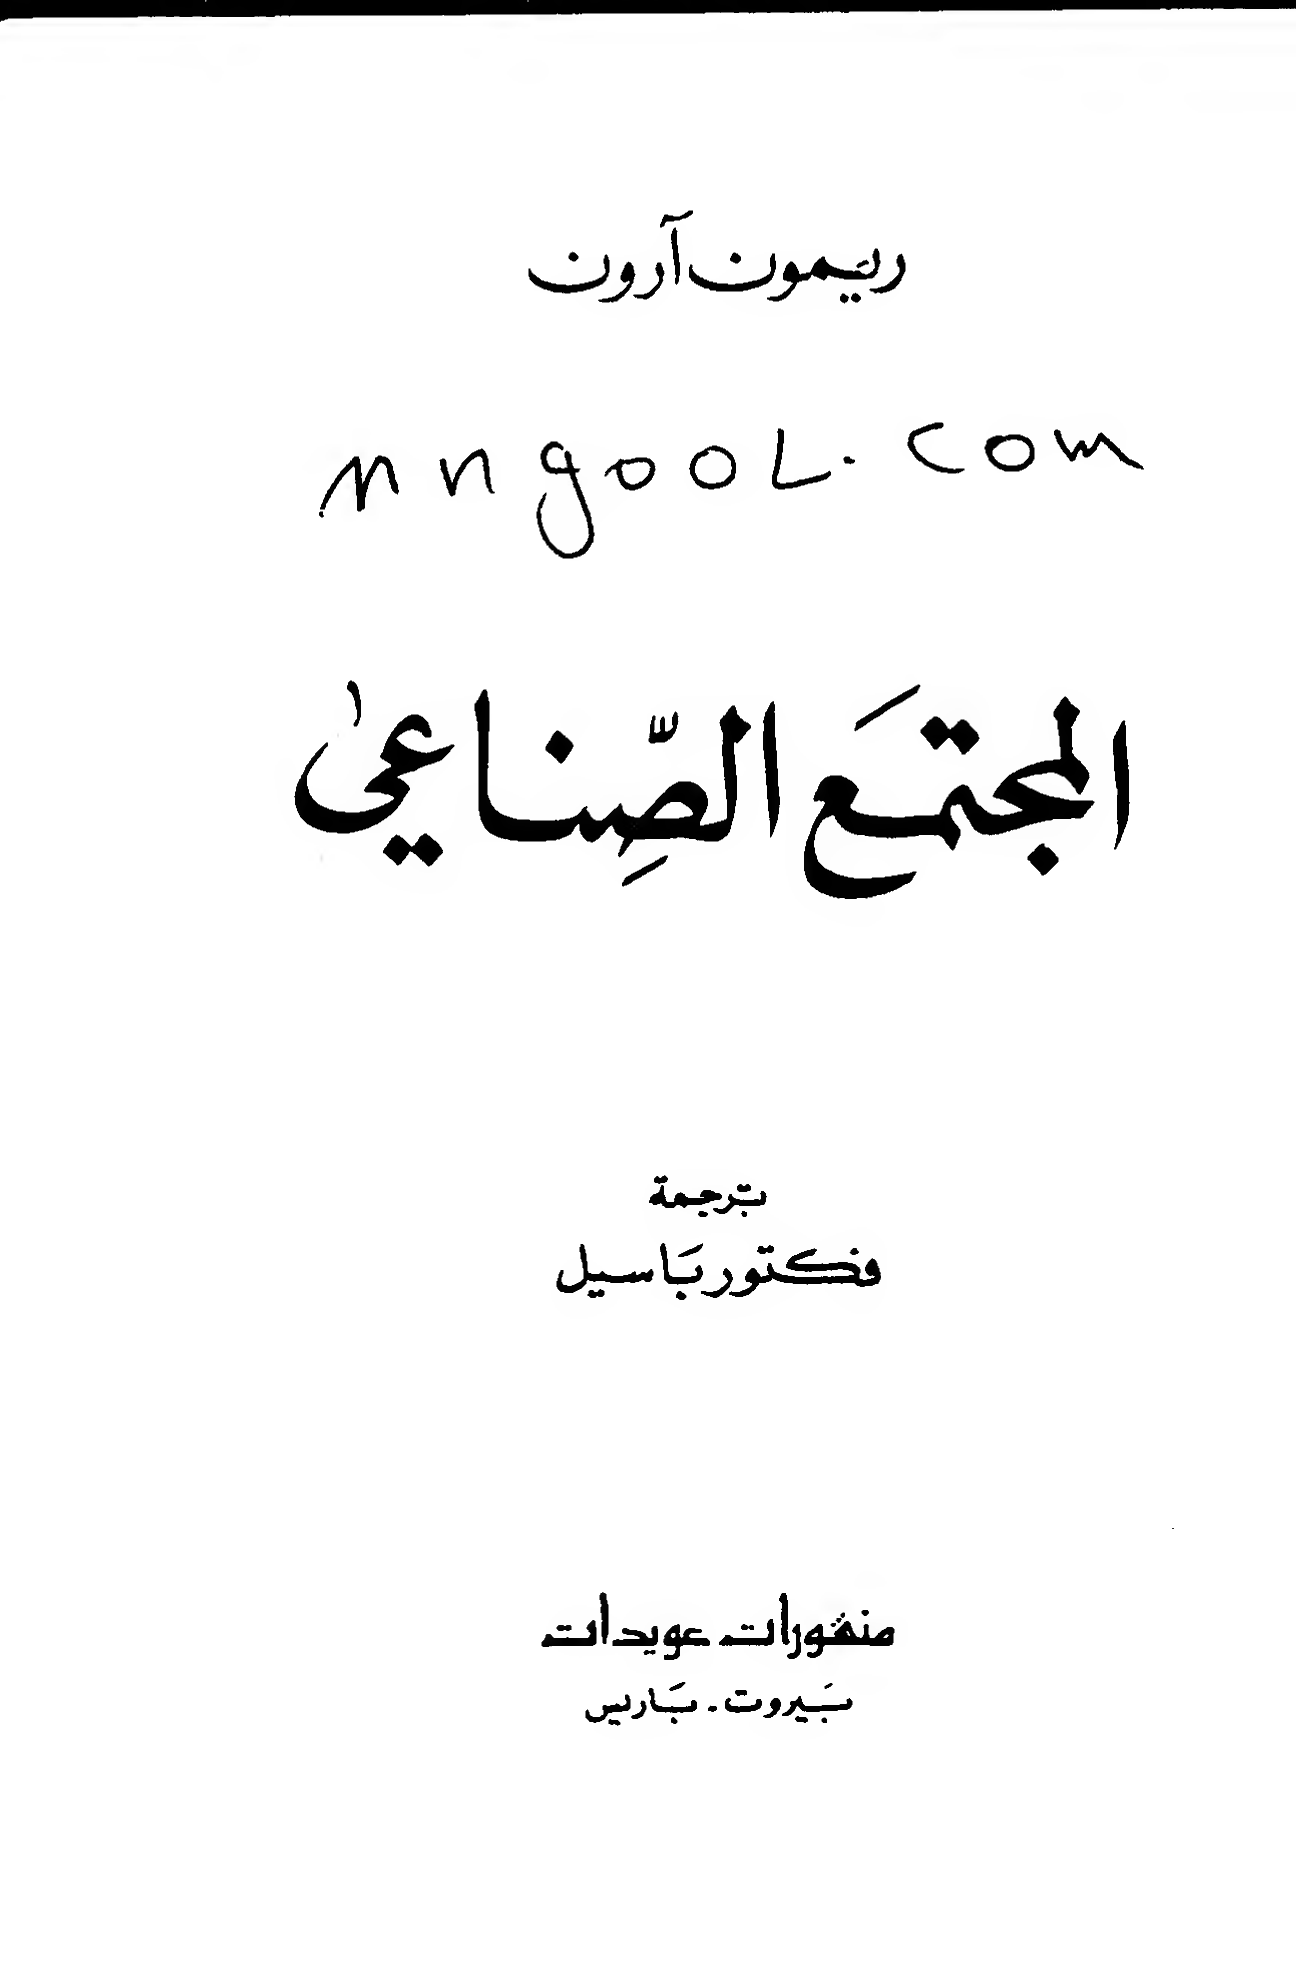 ريَمون آرون
nngooL.com
المجتمَع الصِّناعي
ترجمة
فكتور بَاسيل
منشورات عويدات
بَيروت - بَاريس